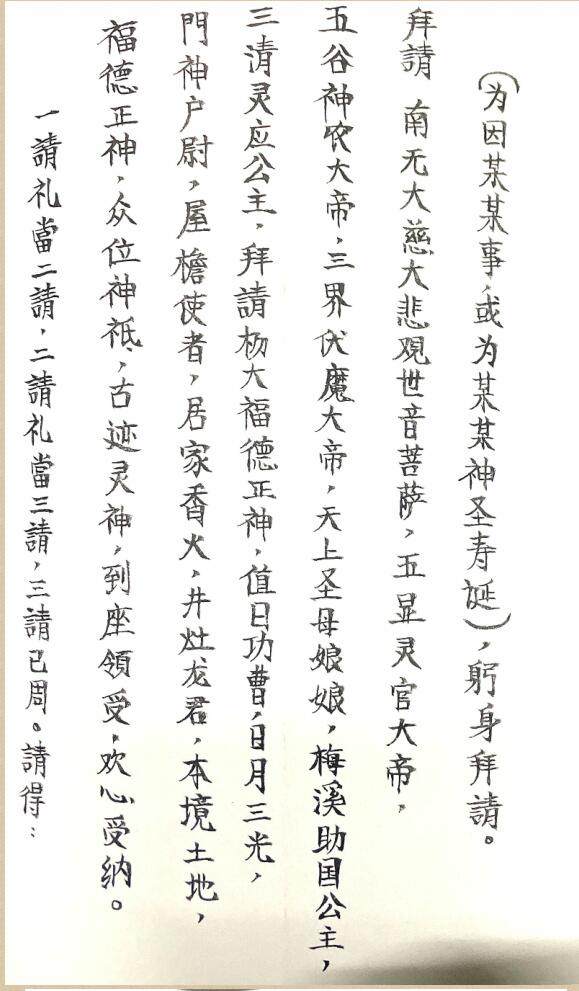 (为因某某事,或为某某神圣寿诞),躬身拜請。
拜請 南无大慈大悲观世音菩萨,五显灵官大帝,
五谷神农大帝,三界伏魔大帝,天上圣母娘娘,梅溪助国公主,
三清灵应公主,拜請杨大福德正神,值日功曹,日月三光,
門神户尉,屋檐使者,居家香火,井灶龙君,本境土地,
福德正神,众位神祇,古迹灵神,到座領受,欢心受纳。
一請礼當二請,二請礼當三請,三請已周。請得: